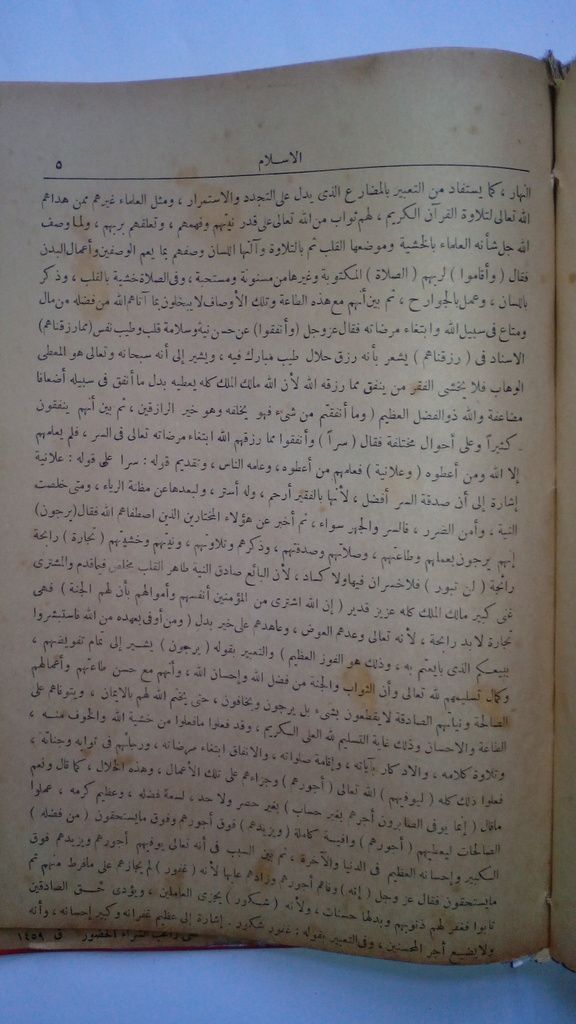 الاسلام
٥
النهار ، كما يستفاد من التعبير بالمضارع الذى يدل على التجدد والاستمرار ، ومثل العلماء غيرهم ممن هداهم
الله تعالى لتلاوة القرآن الكريم ، لهم ثواب من الله تعالى على قدر نيتهم وفهمهم ، وتعلقهم بربهم ، ولما وصف
الله جل شأنه العلماء بالخشية وموضعها القلب ثم بالتلاوة وآلتها اللسان وصفهم بما يعم الوصفين وأعمال البدن
فقال ( وأقاموا ) لربهم ( الصلاة ) المكتوبة وغيرها من مسنونة ومستحبة ، وفى الصلاة خشية بالقلب ، وذكر
باللسان ، وعمل بالجوارح ، ثم بين أنهم مع هذه الطاعة وتلك الأوصاف لا يبخلون بما آتاهم الله من فضله من مال
ومتاع فى سبيل الله وابتغاء مرضاته فقال عز وجل ( وأنفقوا ) عن حسن نية وسلامة قلب وطيب نفس ( مما رزقناهم )
الاسناد فى ( رزقناهم ) يشعر بأنه رزق حلال طيب مبارك فيه ، ويشير إلى أنه سبحانه وتعالى هو المعطى
الوهاب فلا يخشى الفقر من ينفق مما رزقه الله لأن الله مالك الملك كله يعطيه بدل ما أنفق فى سبيله أضعافا
مضاعفة والله ذو الفضل العظيم ( وما أنفقتم من شىء فهو يخلفه وهو خير الرازقين ، ثم بين أنهم ينفقون
كثيراً وعلى أحوال مختلفة فقال ( سراً ) وأنفقوا مما رزقهم الله ابتغاء مرضاته تعالى فى السر ، فلم يعلمهم
إلا الله ومن أعطوه ( وعلانية ) فعلمهم من أعطوه ، وعامه الناس ، وتقديم قوله : سرا على قوله : علانية
إشارة إلى أن صدقة السر أفضل ، لأنها بالفقير أرحم ، وله أستر ، ولبعدها عن مظنة الرياء ، ومتى خلصت
النية ، وأمن الضرر ، فالسر والجهر سواء ، ثم أخبر عن هؤلاء المختارين الذين اصطفاهم الله فقال ( يرجون )
إنهم يرجون بعملهم وطاعتهم ، وصلاتهم وصدقتهم ، وذكرهم وتلاوتهم ، ونيتهم وخشيتهم ( تجارة ) رابحة
رائجة ( لن تبور ) فلا خسران فيها ولا كساد ، لأن البائع صادق النية طاهر القلب مخلص فيما قدم والمشترى
غنى كبير مالك الملك كله عزيز قدير ( إن الله اشترى من المؤمنين أنفسهم وأموالهم بأن لهم الجنة ) فهى
تجارة لابد رابحة ، لأنه تعالى وعدهم العوض ، وعاهدهم على خير بدل ( ومن أوفى بعهده من الله فاستبشروا
ببيعكم الذى بايعتم به ، وذلك هو الفوز العظيم ) والتعبير بقوله ( يرجون ) يشير إلى تمام تفويضهم ،
وكمال تسليمهم لله تعالى وأن الثواب والجنة من فضل الله وإحسان الله ، وأنهم مع حسن طاعتهم وأعمالهم
الصالحة ونياتهم الصادقة لا يقطعون بشىء بل يرجون ويخافون ، حتى يختم الله لهم بالايمان ، ويتوفاهم على
الطاعة والاحسان وذلك غاية التسليم لله العلى الكريم ، وقد فعلوا ما فعلوا من خشية الله والخوف منه ،
وتلاوة كلامه ، والاذكار بآياته ، وإقامة صلواته ، والانفاق ابتغاء مرضاته ، ورجائهم فى ثوابه وجناته ،
فعلوا ذلك كله ( ليوفيهم ) الله تعالى ( أجورهم ) وجزاءهم على تلك الأعمال ، وهذه الخلال ، كما قال ونعم
ماقال ( إنما يوفى الصابرون أجرهم بغير حساب ) بغير حصر ولا حد ، لسعة فضله ، وعظيم كرمه ، عملوا
الصالحات ليعطيهم ( أجورهم ) وافيـة كاملة ( ويزيدهم ) فوق أجورهم وفوق مايستحقون ( من فضله )
الكبير وإحسانه العظيم فى الدنيا والآخرة ، ثم بين السبب فى أنه تعالى يوفيهم أجورهم ويزيدهم فوق
مايستحقون فقال عز وجل ( إنه ) وفاهم أجورهم وزادهم عليها لأنه ( غفور ) لم يجازهم على مافرط منهم ثم
تابوا فغفر لهم ذنوبهم وبدلها حسنات ، ولأنه ( شكور ) يجزى العاملين ، ويؤدى حق الصادقين
ولا يضيع أجر المحسنين ، وفى التعبير بقوله : غفور شكور . إشارة إلى عظيم غفرانه وكبير إحسانه ، وأنه
ق ١٤٥٩